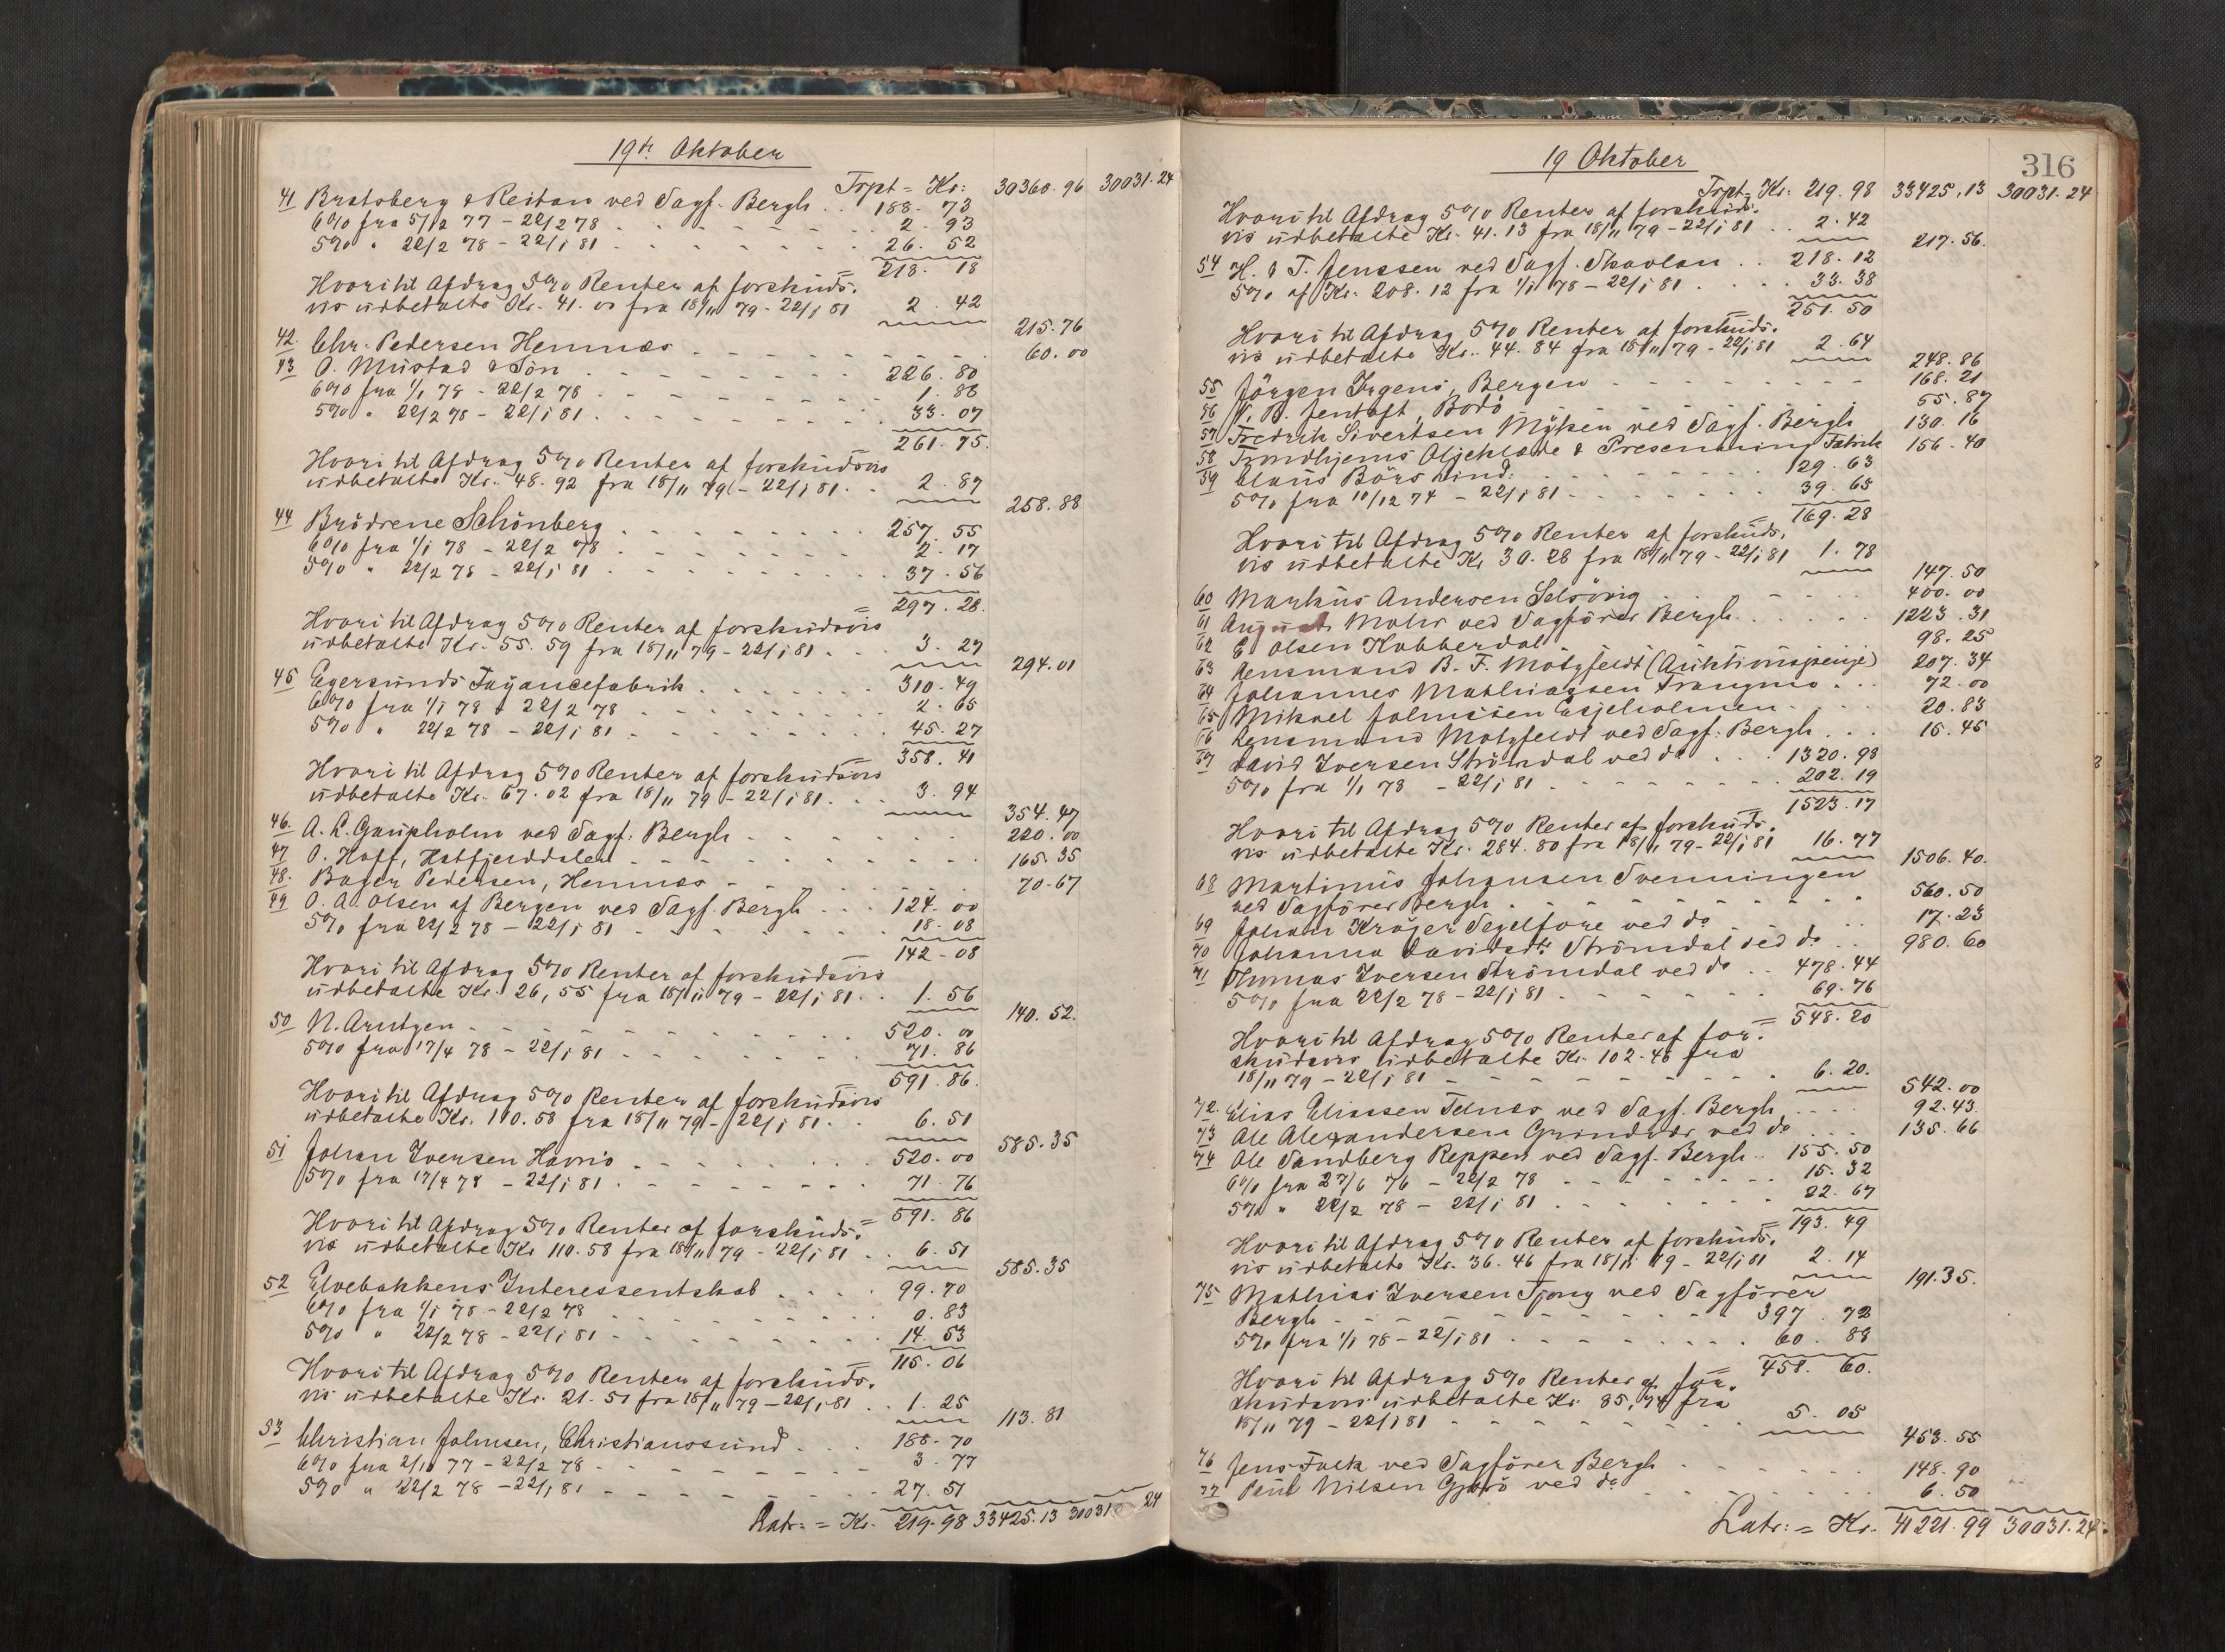 19de Oktober
Trpt = Kr: 30360.96 30031.24
41 Bratsberg & Reitan ved Sagf. Bergh . . 188.73
6% fra 5/12 77 - 22/2 78 2.93
5% " 22/2 78 - 22/1 81 26.52
= 218.18
Hvori til Afdrag 5% Renter af forskuds-
vis udbetalte Kr. 41.00 fra 18/11 79 - 22/1 81 2.42
215.76
42. Chr. Pedersen Hemnæs 60.00
43 O. Mustad & Søn 226.80
6% fra 1/1 78 - 22/2 78 1.88
5% " 22/2 78 - 22/1 81 33.07
261.75.
Hvori til Afdrag 5% Renter af forskudsvis
udbetalte Kr. 48.92 fra 18/11 79 - 22/1 81 . . 2.87
258.88
44 Brödrene Schönberg 257.55
6% fra 1/1 78 - 22/2 78 2.17
5% " 22/2 78 - 22/1 81 37.56
= 297.28.
Hvori til Afdrag 5% Renter af forskudsvis
udbetalte Kr. 55.59 fra 18/11 79 - 22/1 81 . . 3.27
294.01
45 Egersunds Fayancefabrik 310.49
6% fra 1/1 78 - 22/2 78 2.65
5% " 22/2 78 - 22/1 81 45.27
= 358.41
Hvori til Afdrag 5% Renter af forskudsvis
udbetalte Kr. 67.02 fra 18/11 79 - 22/1 81 . . 3.94
354.47
46. A. L. Gaupholm ved Sagf. Bergh 220.00
47 O. Hoff, Hatfjelddalen 165.35
48. Bager Pedersen, Hemnæs 70.67
49 O. A. Olsen af Bergen ved Sagf. Bergh . . 124.00
5% fra 22/2 78 - 22/1 81 18.08
= 142.08
Hvori til Afdrag 5% Renter af forskudsvis
udbetalte Kr. 26,55 fra 18/11 79 - 22/1 81 . . 1.56
140.52.
50 N. Arntzen 520.00
5% fra 17/4 78 - 22/1 81 71.86
= 591.86.
Hvori til Afdrag 5% Renter af forskudsvis
udbetalte Kr. 110.58 fra 18/11 79 - 22/1 81 . . 6.51
585.35
51 Johan Iversen Havris 520.00
5% fra 17/4 78 - 22/1 81 71.76
= 591.86
Hvori til Afdrag 5% Renter af forskuds-
vis udbetalte Kr 110.58 fra 18/11 79 - 22/1 81 . . 6.51
585.35
52 Elvebakkens Interessentskab 99.70
6% fra 1/1 78 - 22/2 78 0.83
5% " 22/2 78 - 22/1 81 14.53
= 115.06
Hvori til Afdrag 5% Renter af forskuds-
vis udbetalte Kr. 21.51 fra 18/11 79 - 22/1 81 . . 1.25
113.81
53 Christian Johnsen, Christianssund 188.70
6% fra 2/10 77 - 22/2 78 3.77
5% " 22/2 78 - 22/1 81 27.51
Latr: = Kr. 219.98 33425.13 30031.24
316
19 Oktober
Trpt = Kr: 219.98 33425.13 30031.24
Hvori til Afdrag 5% Renter af forskuds-
vis udbetalte Kr. 41.13 fra 18/11 79 - 22/1 81 . . 2.42
217.56.
54 H. & F. Jenssen ved Sagf. Skavlan . . 218.12
5% af Kr. 208.12 fra 1/1 78 - 22/1 81 33.38
= 251.50
Hvori til Afdrag 5% Renter af forskuds-
vis udbetalte Kr. 44.84 fra 18/11 79 - 22/1 81 2.64
248.86
55 Jörgen Irgens, Bergen 168.21
56 Jentoft, Bodö 55.87
57 Fredrik Sivertsen Myken ved Sagf. Bergh 130.16
58 Trondhjems Oljeklæde & Presenning Fabrik 156.40
59 Claus Börs Lind: 129.63
5% fra 10/12 74 - 22/1 81 39.65
= 169.28
Hvori til Afdrag 5% Renter af forskuds-
vis udbetalte Kr 30.28 fra 18/11 79 - 22/1 81 1.78
147.50
60 Markus Andersen Selsövig 400.00
61 August Mohr ved Sagförer Bergh 1223.31
62 E. Olsen Kobberdal 98.25
63 Lensmand B. F. Motzfeldt (Auktionspenge) 207.34
64 Johannes Mathiassen Trangmo 72.00
65 Mikael Johnssen Esjeholmen 20.83
66 Lensmand Motzfeldt ved Sagf. Bergh 15.45
67 David Iversen Strömdal ved do 1320.98
5% fra 1/1 78 - 22/1 81 202.19
= 1523.17
Hvori til Afdrag 5% Renter af forskuds-
vis udbetalte Kr. 284.80 fra 18/11 79 - 22/1 81 16.77
1506.40.
68 Martinus Johansen Svenningen
ved Sagförer Bergh 560.50
69 Johan Kröger Segelfore ved do 17.23
70 Johanna Davidsdtr Strömdal ved do 980.60
71 Thomas Iversen Strömdal ved do 478.44
5% fra 22/2 78 - 22/1 81 69.76
= 548.20
Hvori til Afdrag 5% Renter af for-
skudsvis udbetalte Kr. 102.45 fra
18/11 79 - 22/1 81 6.20.
542.00
72. Elias Eliassen Telnæs ved Sagf. Bergh 92.43.
73 Ole Alexandersen Grindvas ved do 135.66
74 Ole Sandberg Reppen ved Sagf. Bergh 155.50
6% fra 27/6 76 - 22/2 78 15.32
5% " 22/2 78 - 22/1 81 22.67
= 193.49
Hvori til Afdrag 5% Renter af forskuds-
vis udbetalte Kr. 36.46 fra 18/11 79 - 22/1 81 2.14
191.35.
75 Mathias Iversen Tjong ved Sagförer
Bergh 397.72
5% fra 1/1 78 - 22/1 81 60.88
= 458.60.
Hvori til Afdrag 5% Renter af for-
skudsvis udbetalte Kr. 85,74 fra
18/11 79 - 22/1 81 5.05
453.55
76 Jens Falch ved Sagförer Bergh 148.90
77 Paul Nilsen Gjerö ved do 6.50
Latr: = Kr. 41221.99 30031.24